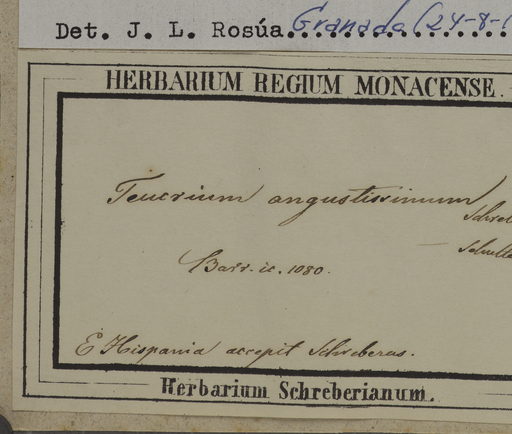 Det. J. L. Rosúa......Granada (24-8-
HERBARIUM REGIUM MONACENSE.
Teucrium angustissimum
Schreb
Barr. ic. 1080.
E Hispania accepit Schreberus.
Herbarium Schreberianum.